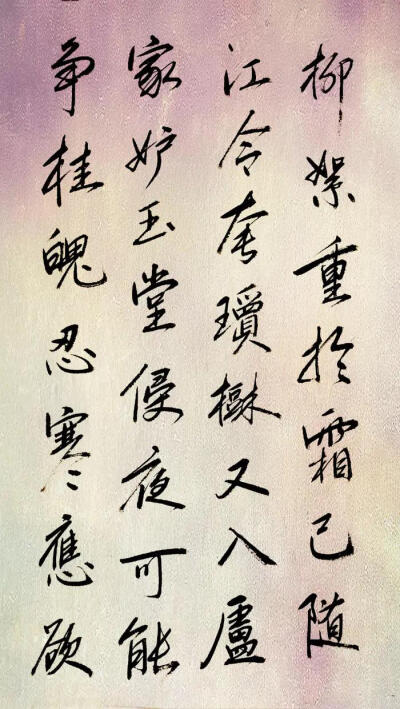 柳絮重於霜已随
江令夸瓊樹又入盧
家妒玉堂侵夜可能
争桂魄忍寒應欲